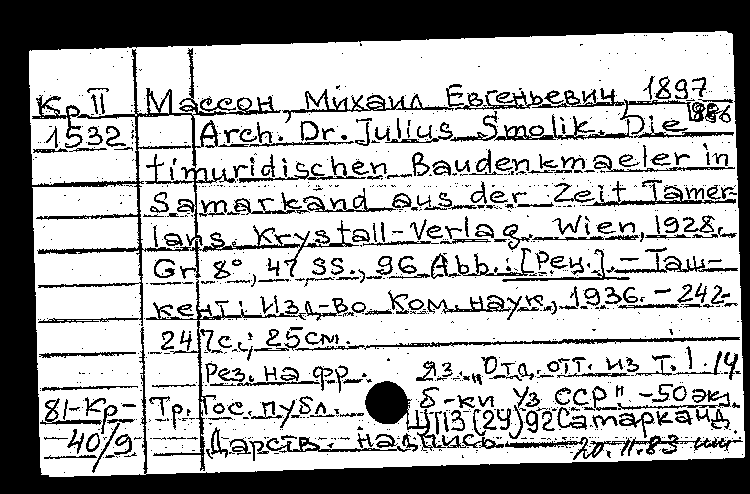 Кр II Массон, Михаил Евгеньевич, 1897
1532 Arch. Dr. Julius Smolik. Die
timuridischen Baudenkmaeler in
Samarkand aus der Zeit Tamer-
lans. Krystall-Verlag. Wien, 1928.
Gr 8°, 47 SS., 96 Abb.: [Рец.]. - Таш-
кент: Изд-во Ком. наук, 1936. - 242-
247с.; 25см.
Рез. на фр. яз. „Отд. отт. из т. 1. 14
81-Кр- Тр. Гос. публ. б-ки Уз ССР" - 50 экз.
Щ113(2У)92Самарканд
40/9 Дарств. надпись 20.11.83